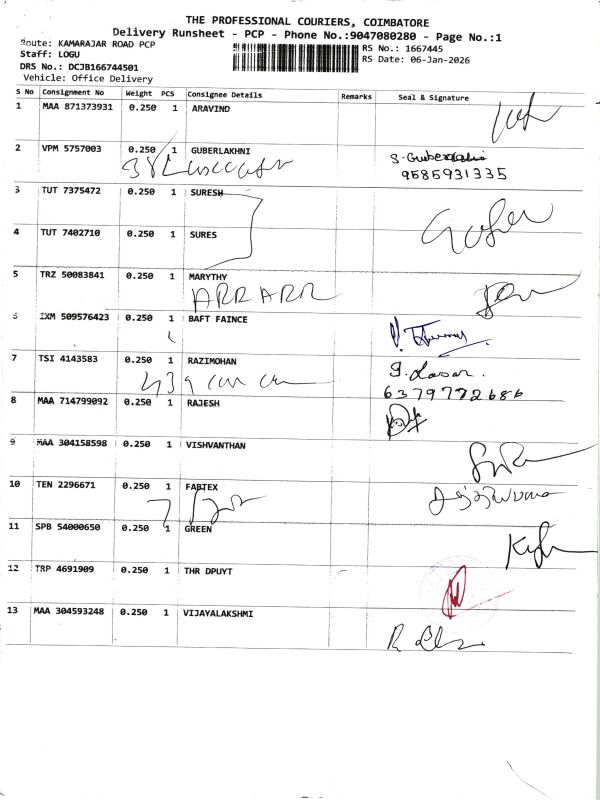 THE PROFESSIONAL COURIERS, COIMBATORE
Delivery Runsheet - PCP - Phone No.:9047080280 - Page No.:1
Route: KAMARAJAR ROAD PCP
RS No.: 1667445
Staff: LOGU
RS Date: 06-Jan-2026
DRS No.: DCJB166744501
Vehicle: Office Delivery
S No Consignment No Weight PCS Consignee Details Remarks Seal & Signature
1 MAA 871373931 0.250 1 ARAVIND
2 VPM 5757003 0.250 1 GUBERLAKHNI
9585931335
3 TUT 7375472 0.250 1 SURESH
4 TUT 7402710 0.250 1 SURES
5 TRZ 50083841 0.250 1 MARYTHY
6 IXM 509576423 0.250 1 BAFT FAINCE
7 TSI 4143583 0.250 1 RAZIMOHAN
6379772686
8 MAA 714799092 0.250 1 RAJESH
9 MAA 304158598 0.250 1 VISHVANTHAN
10 TEN 2296671 0.250 1 FABTEX
11 SPB 54000650 0.250 1 GREEN
12 TRP 4691909 0.250 1 THR DPUYT
13 MAA 304593248 0.250 1 VIJAYALAKSHMI